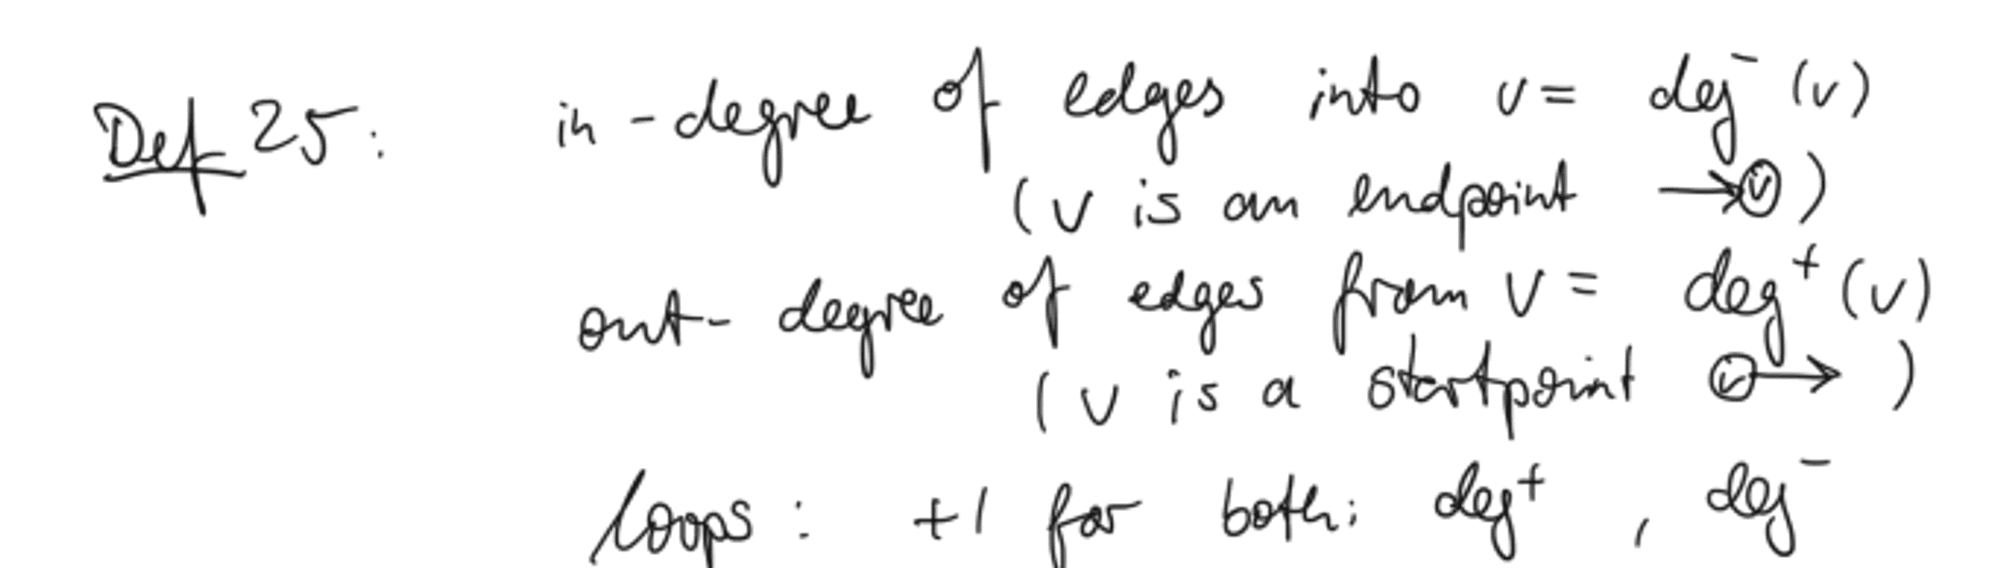 Def 25: in-degree of edges into v = deg⁻(v)
(v is an endpoint → v )
out-degree of edges from v = deg⁺(v)
(v is a startpoint v → )
loops: +1 for both: deg⁺, deg⁻